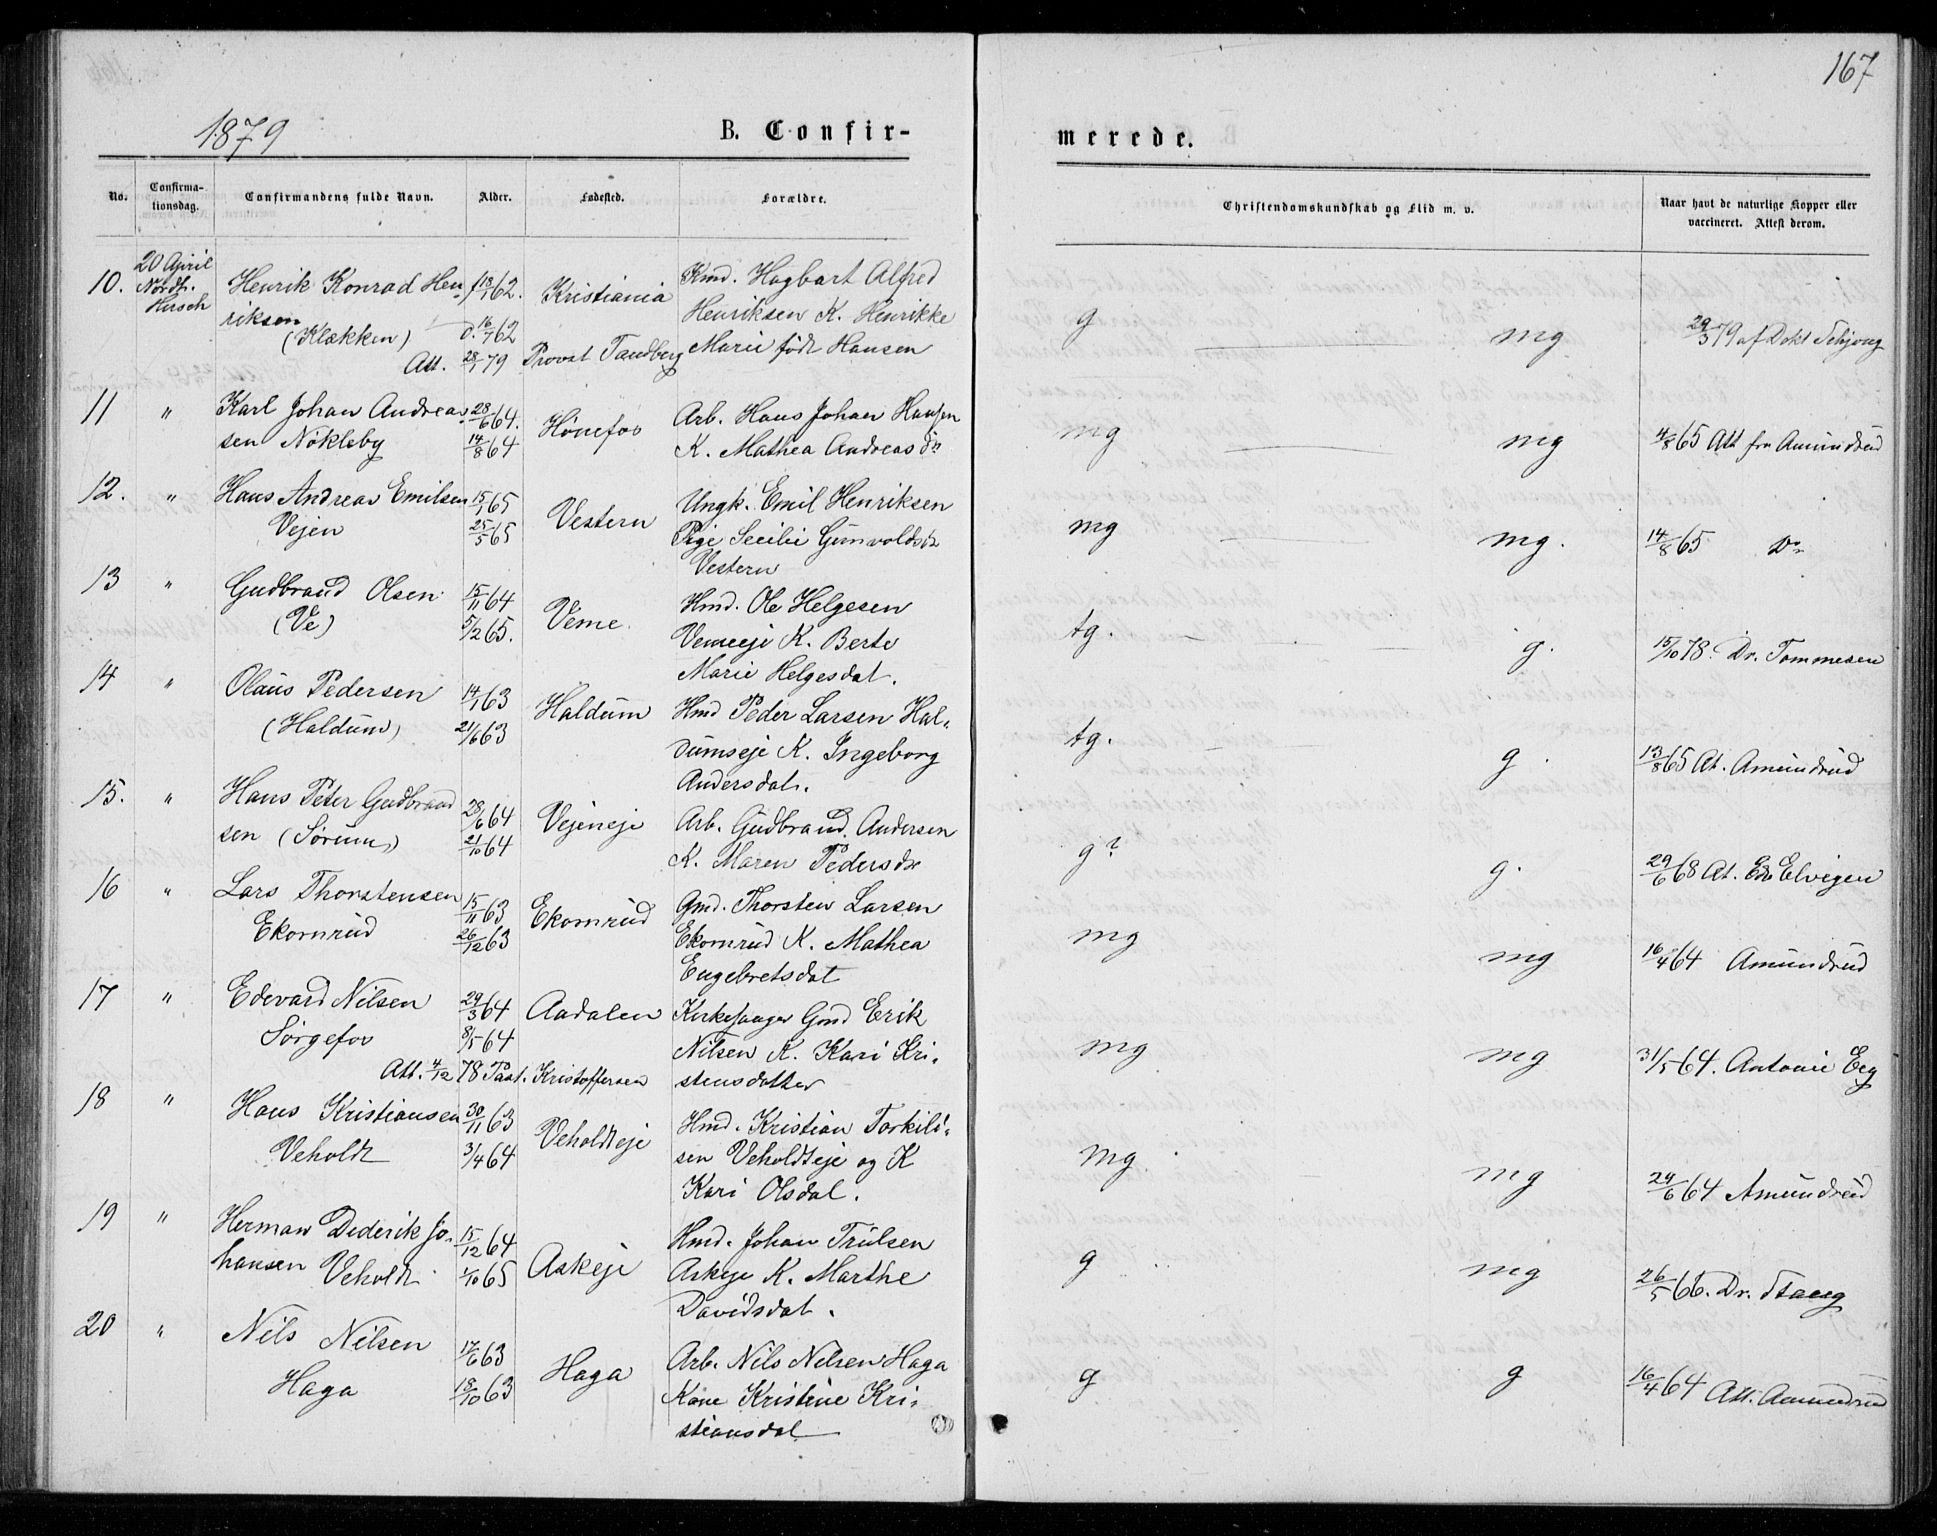 167
1879
B. Confir-
merede.
No.
Confirma-
tionsdag.
Confirmandens fulde Navn.
Alder.
Fødested.
Forældre.
Christendomskundskab og Flid m. v.
Naar havt de naturlige Kopper eller
vaccineret. Attest derom.
20 April
10. Nordh. Henrik Konrad Hen- f 18/1 62. Kristiania Kmd. Hagbart Alfred
Husch riksen d. 16/7 62 Henriksen K. Henrikke g mg 29/3 79 af Dokt
(Klækken) Marie født Hansen
Att. 28/1 79 Provst Tandberg
11 " Karl Johan Andreas- 28/6 64. Hønefos Arb. Hans Johan Hansen mg mg 4/8 65 Att fra Amundrud
sen Nökleby 14/8 64 K. Mathea Andreasdr
12. " Hans Andreas Emilsen 15/1 65 Vestern Ungk. Emil Henriksen mg mg. 14/8 65 Do
Vejen 25/5 65 Pige Secilie Gunvoldsdr
Vestern
13 " Gudbrand Olsen 15/11 64 Veme Hmd. Ole Helgesen tg. g. 15/10 78. Dr. Tommesen
(Ve) 5/2 65. Vemeeje K. Berte
Marie Helgesdat.
14 " Olaus Pedersen 14/1 63 Haldum Hmd Peder Larsen Hal- tg. g. 13/8 65 At. Amundrud
(Haldum) 21/6 63 dumseje K. Ingeborg
Andersdat.
15. " Hans Peter Gudbrand 28/6 64 Vejeneje Arb. Gudbrand Andersen g? g. 29/6 68 At. Elvigen
sen (Sørum) 21/10 64 K. Maren Pedersdr
16 " Lars Thorstensen 15/11 63 Ekornrud Gmd. Thorsten Larsen mg mg 16/4 64 Amundrud
Ekornrud 26/12 63 Ekornrud K. Mathea
Engebretsdat
17 " Edevard Nilsen 29/3 64 Aadalen Kirkesanger Gmd Erik mg mg 31/5 64. Antonie Eeg
Sørgefos 8/5 64 Nilsen K. Kari Kri-
Att. 4/12 78 Past. Kristoffersen stensdatter
18 " Hans Kristiansen 30/11 63 Veholdteje Hmd. Kristian Torkild- mg mg 24/6 64 Amundrud
Veholdt 3/4 64 sen Veholdteje og K
Kari Olsdat.
19 " Herman Dederik Jo- 15/12 64 Askeje Hmd. Johan Trulsen g mg 26/5 66. Dr. Stang
hansen Veholdt 1/10 65 Askeje K. Marthe
Davidsdat.
20 " Nils Nilsen 17/6 63 Haga Arb. Nils Nilsen Haga g g 16/4 64 Att. Amundrud
Haga 18/10 63 Kone Kristine Kri-
stiansdat